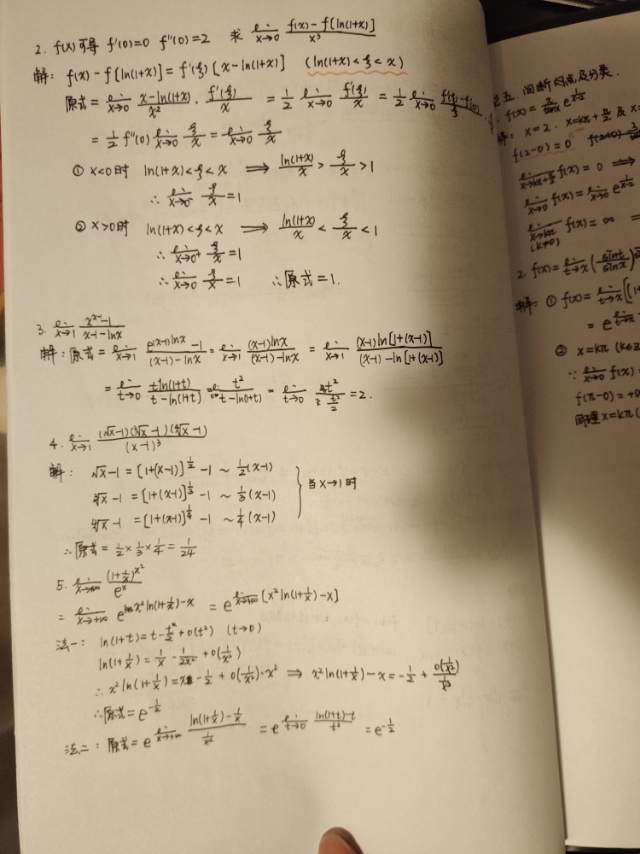 2. f(x)可导 f'(0)=0 f''(0)=2 求 lim_{x→0} (f(x)-f[ln(1+x)])/x³
解: f(x)-f[ln(1+x)] = f'(ξ)[x-ln(1+x)] (ln(1+x)<ξ<x)
原式 = lim_{x→0} (x-ln(1+x))/x² · f'(ξ)/x = 1/2 lim_{x→0} f'(ξ)/x = 1/2 lim_{x→0} (f'(ξ)-f'(0))/ξ ·
= 1/2 f''(0) lim_{x→0} ξ/x = lim_{x→0} ξ/x
① x<0时 ln(1+x)<ξ<x ⟹ ln(1+x)/x > ξ/x > 1
∴ lim_{x→0⁻} ξ/x = 1
② x>0时 ln(1+x)<ξ<x ⟹ ln(1+x)/x < ξ/x < 1
∴ lim_{x→0⁺} ξ/x = 1
∴ lim_{x→0} ξ/x = 1 ∴原式=1.
3. lim_{x→1} (x^x-1)/(x-1-lnx)
解: 原式 = lim_{x→1} (e^{(x-1)lnx}-1)/((x-1)-lnx) = lim_{x→1} (x-1)lnx/((x-1)-lnx) = lim_{x→1} (x-1)ln[1+(x-1)]/((x-1)-ln[1+(x-1)])
= lim_{t→0} tln(1+t)/(t-ln(1+t)) = lim t²/(t-ln(1+t)) = lim_{t→0} t²/(t²/2) = 2.
4. lim_{x→1} (√x-1)(∛x-1)(∜x-1)/(x-1)³
解: √x-1 = [1+(x-1)]^{1/2} -1 ~ 1/2(x-1)
∛x-1 = [1+(x-1)]^{1/3} -1 ~ 1/3(x-1) 当x→1时
∜x-1 = [1+(x-1)]^{1/4} -1 ~ 1/4(x-1)
∴原式 = 1/2 × 1/3 × 1/4 = 1/24
5. lim_{x→+∞} (1+1/x)^{x²}/e^x
= lim_{x→+∞} e^{x²ln(1+1/x)-x} = e^{lim_{x→+∞}[x²ln(1+1/x)-x]}
法一: ln(1+t) = t - t²/2 + o(t²) (t→0)
ln(1+1/x) = 1/x - 1/2x² + o(1/x²)
∴ x²ln(1+1/x) = x - 1/2 + o(1/x²)·x² ⟹ x²ln(1+1/x)-x = -1/2 + o(1/x²)/(1/x²)
∴原式 = e^{-1/2}
法二: 原式 = e^{lim_{x→+∞} (ln(1+1/x)-1/x)/(1/x²)} = e^{lim_{t→0} (ln(1+t)-t)/t²} = e^{-1/2}
五 间断点及分类.
f(x) = e^{1/(x-2)}
x=2. x=kπ+π/2 及
f(2-0)=0
f(x)=0 ⟹
lim_{x→0} f(x) = lim_{x→0} e^{1/(x-2)}
lim_{x→kπ} f(x) = ∞
(k≠0)
2. f(x) = lim_{t→x} (sint/sinx)
解: ① f(x) = lim_{t→x}
② x=kπ (k∈
∵ lim_{x→0} f(x) =
f(π-0)=+
同理 x=kπ(